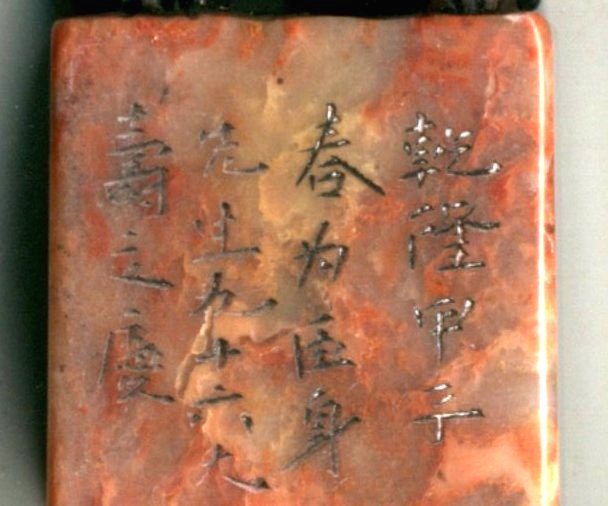 乾隆甲子
春为臣身
先生九十六大
壽之慶